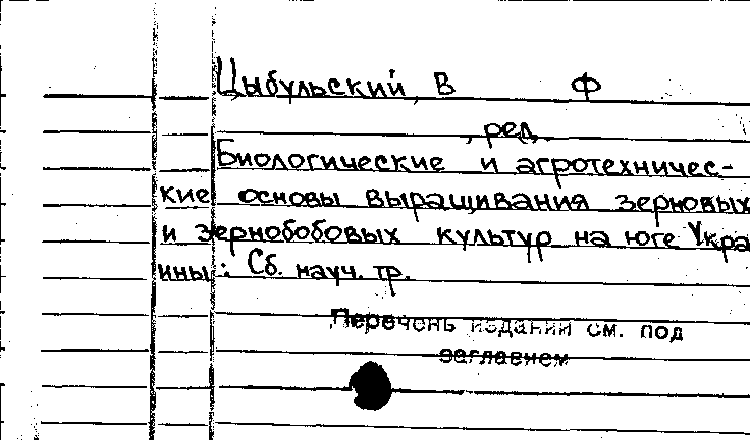 Цыбульский, В Ф
, ред.
Биологические и агротехничес-
кие основы выращивания зерновых
и зернобобовых культур на юге Укра
ины : Сб. науч. тр.
Перечень изданий см. под
заглавием